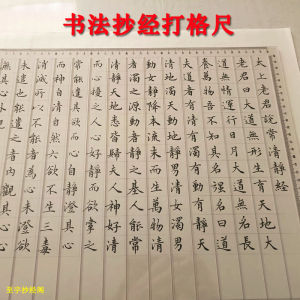 书法抄经打格尺
太上老君說常清靜經
老君曰大道無形生育天地大
道無情運行日月大道無名長
養萬物吾不知其名强名曰道
夫道者有清有濁有動有靜天
清地濁天動地靜男清女濁男
動女靜降本流末而生萬物清
者濁之源動者靜之基人能常
清靜天地悉皆歸夫人神好清
而心擾之人心好靜而欲牽之
常能遣其欲而心自靜澄其心
而神自清自然六欲不生三毒
消滅所以不能者為心未澄欲
未遣也能遣之者內觀其心
無其心外
至宇抄经阁